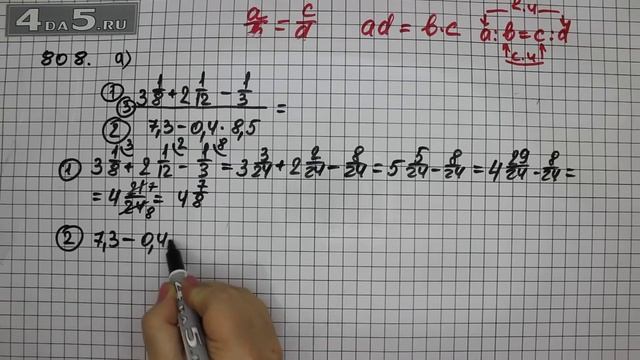 4DA5.RU
a/b = c/d   ad = b·c   a:b=c:d
к.ч
с.ч
808. а)
① 3 1/8 + 2 1/12 − 1/3
③ =
② 7,3 − 0,4 · 8,5
① 3 1/8 + 2 1/12 − 1/3 = 3 3/24 + 2 2/24 − 8/24 = 5 5/24 − 8/24 = 4 29/24 − 8/24 =
= 4 21/24 = 4 7/8
② 7,3 − 0,4